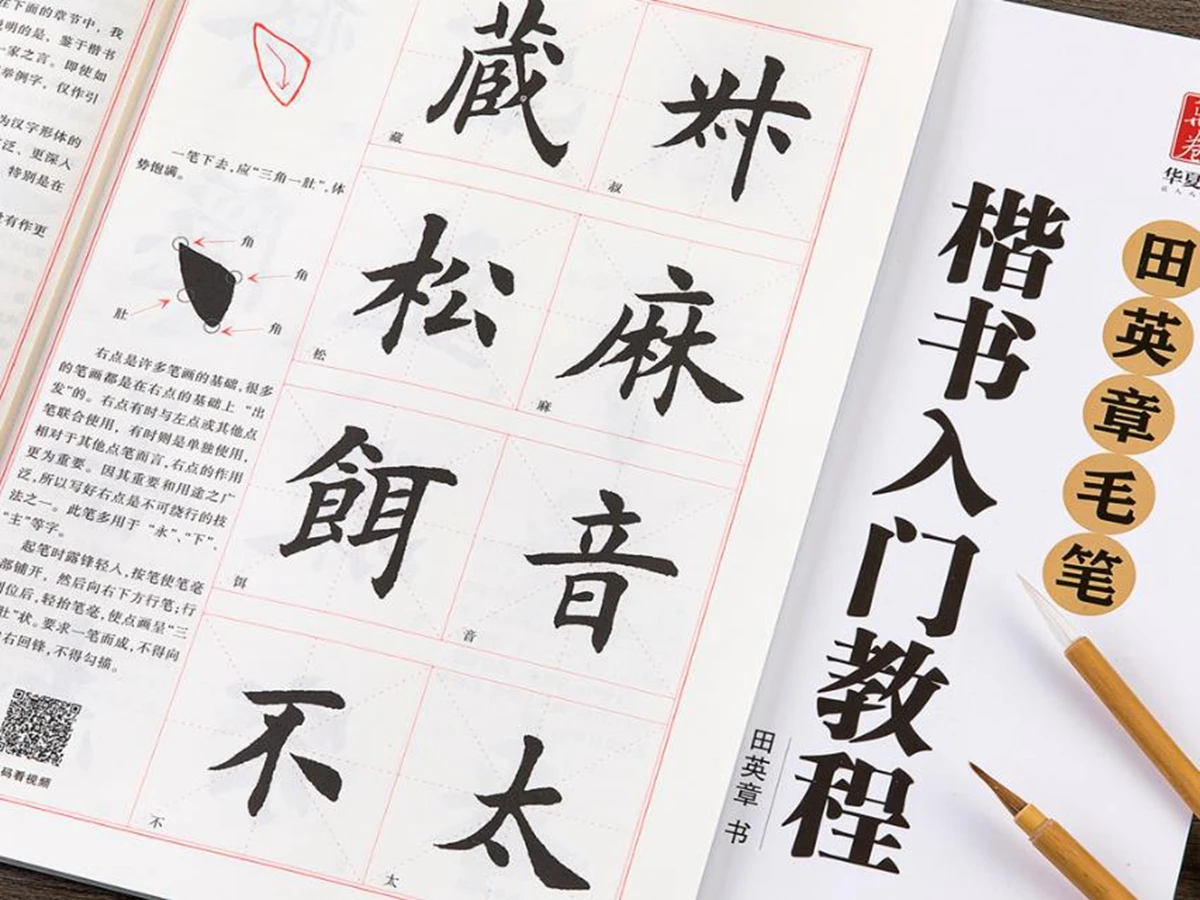 在下面的章节中，我
说明的是，鉴于楷书
一家之言。即使如
举例字，仅作引
为汉字形体的
泛、更深入
特别是在
没有作更
一笔下去，应“三角一肚”，体
势饱满。
角
角
肚
角
右点是许多笔画的基础，很多
的笔画都是在右点的基础上“出
发”的。右点有时与左点或其他点
笔联合使用，有时则是单独使用，
相对于其他点笔而言，右点的作用
更为重要。因其重要和用途之广
泛，所以写好右点是不可绕行的技
法之一。此笔多用于“永”、“下”、
“主”等字。
起笔时露锋轻入，按笔使笔毫
部铺开，然后向右下方行笔；行
到位后，轻抬笔毫，使点画呈“三
肚”状。要求一笔而成，不得向
右回锋，不得勾描。
码看视频
藏
叔
藏
叔
松
麻
松
麻
餌
音
饵
音
不
太
不
太
华夏
田英章毛笔
楷书入门教程
田英章 书